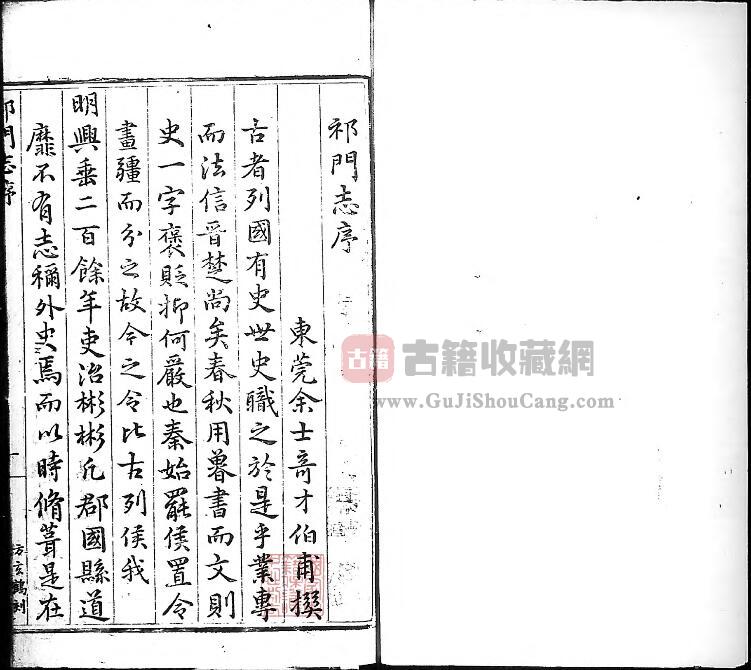 祁門志序
東莞余士奇才伯甫撰
古者列國有史世史職之於是乎業專
而法信晉楚尚矣春秋用魯書而文則
史一字褒貶抑何嚴也秦始罷侯置令
畫疆而分之故今之令比古列侯我
明興垂二百餘年吏治彬彬凡郡國縣道
靡不有志稱外史焉而以時脩葺是在
祁門志序
一
古籍 古籍收藏網
www.GuJiShouCang.com